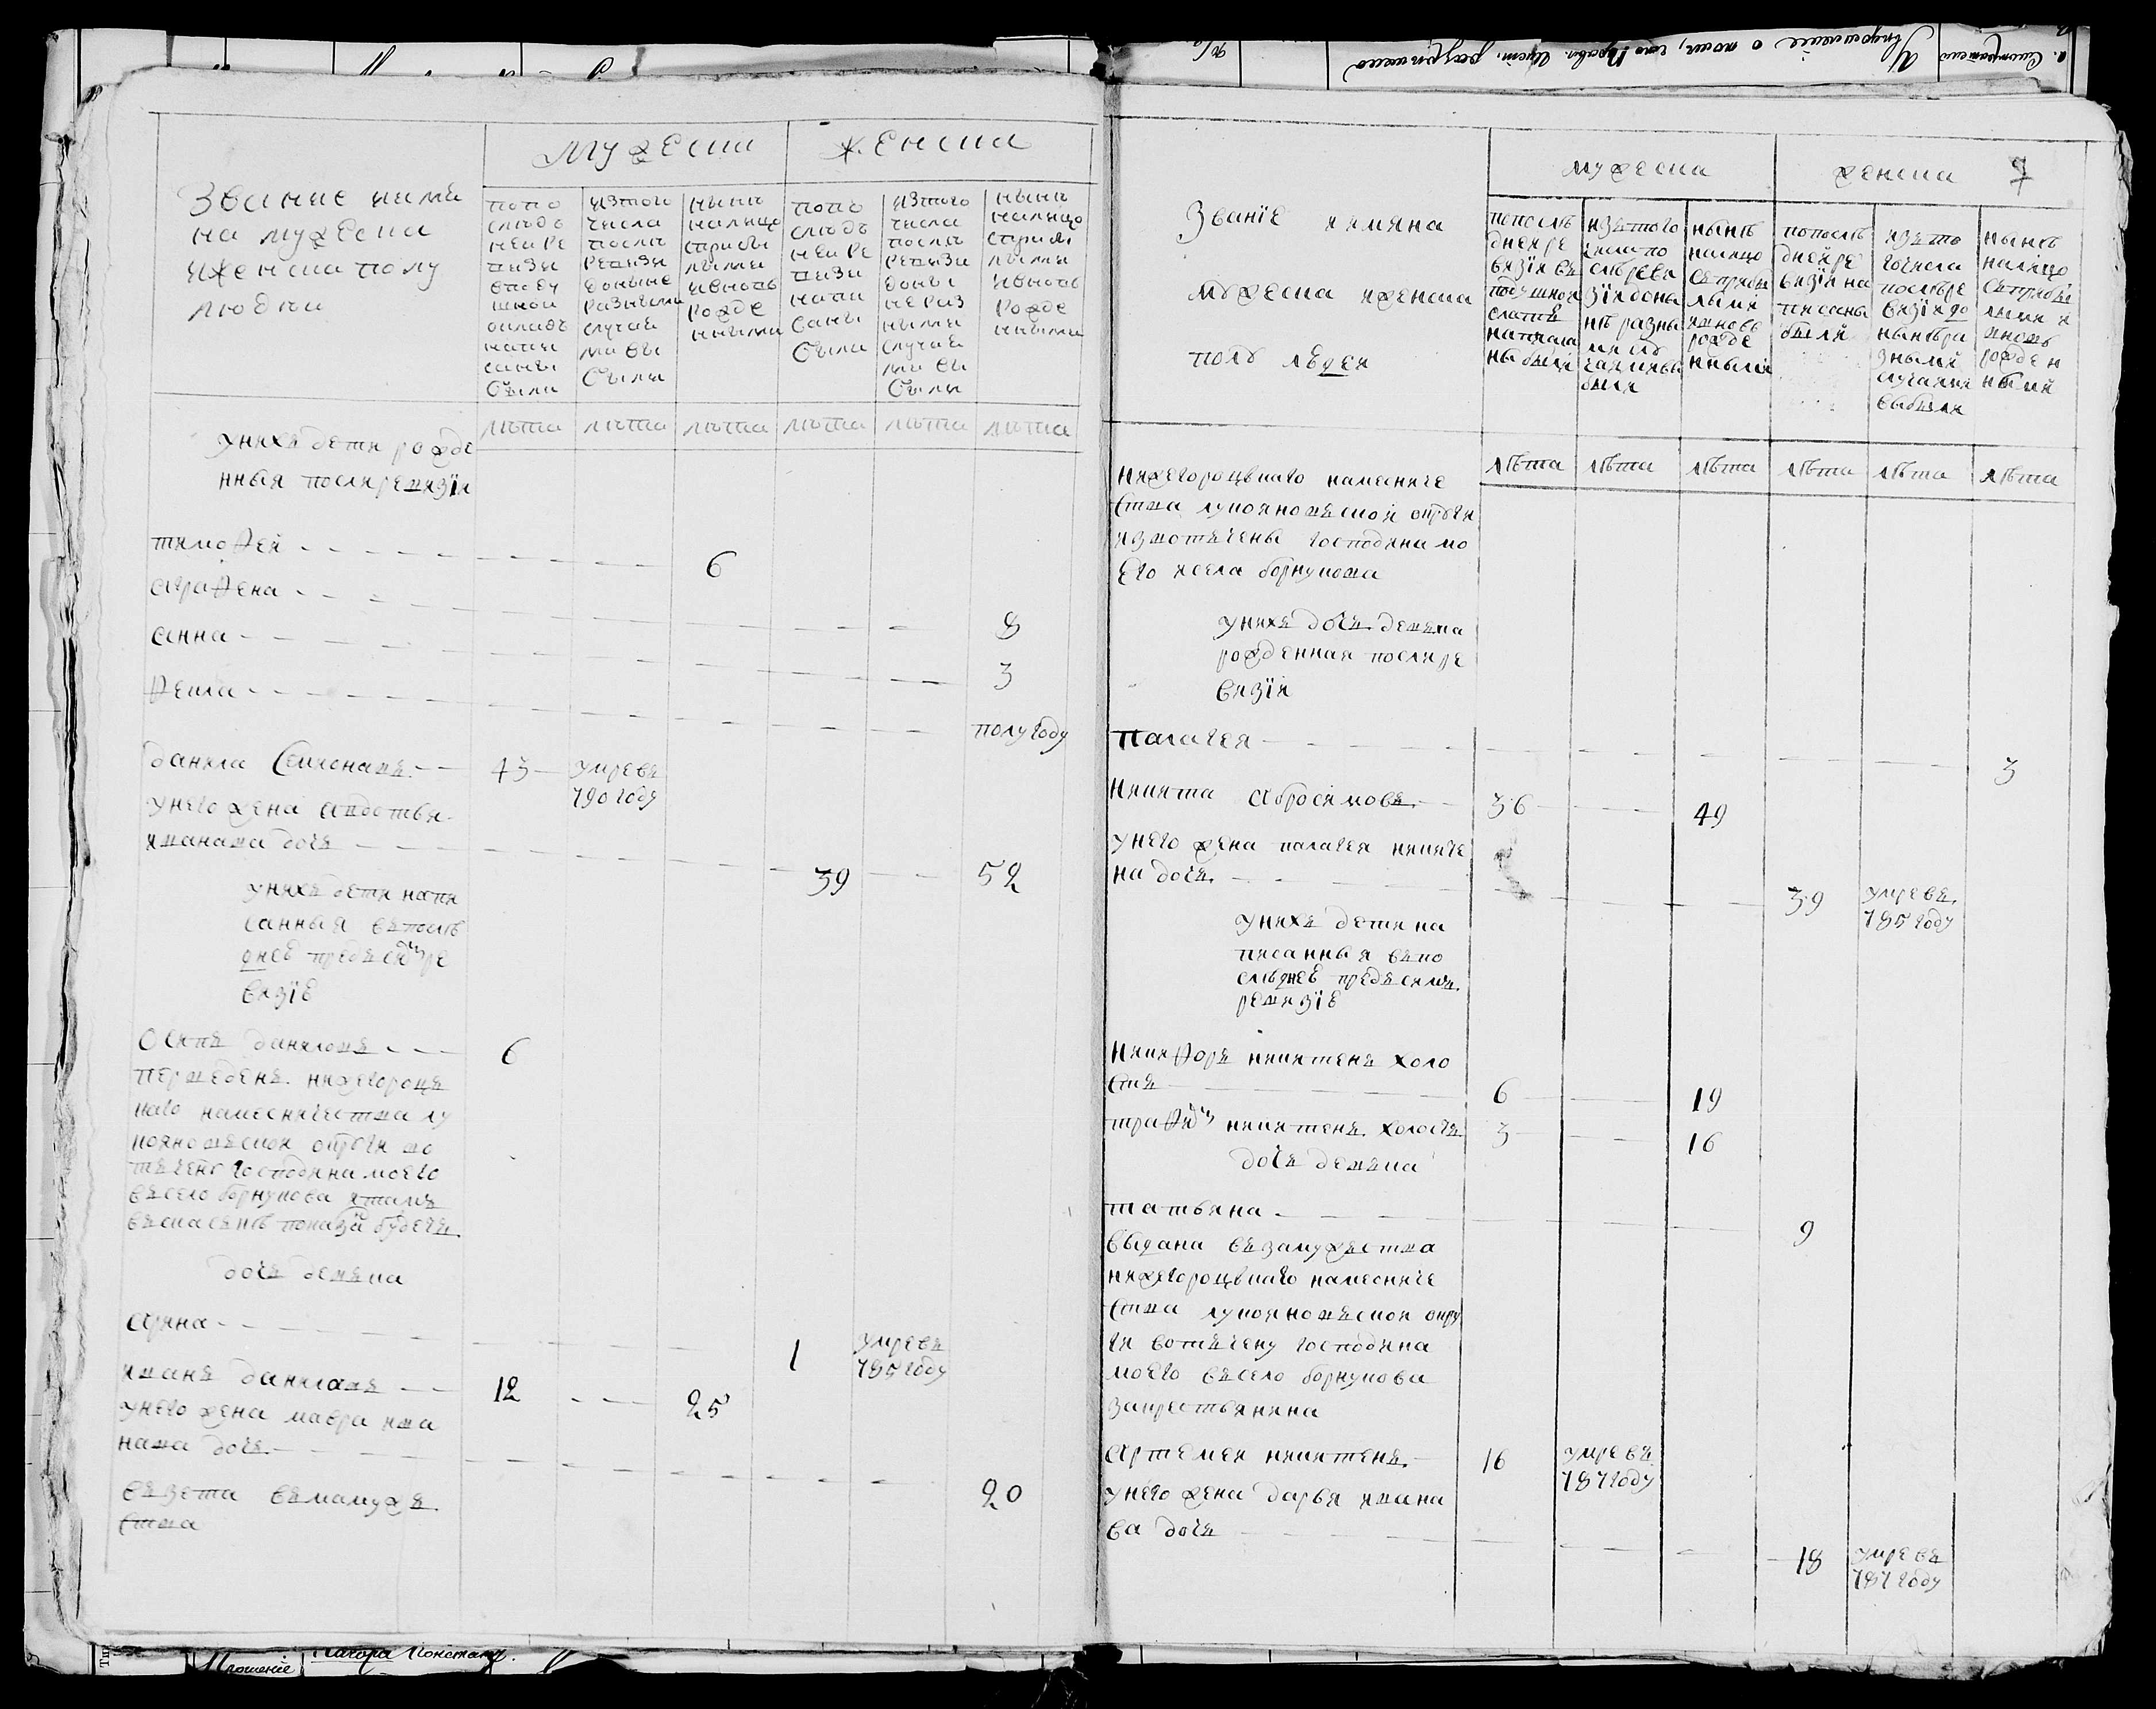 Звание имя
на мужеска
и женска полу
людей
Мужеска
Женска
по по
следъ
ней ре
визи
в поду
шной
окладъ
напи
саны
были
изтого
числа
послъ
ревизи
доныне
разными
случая
ми вы
были
нынъ
налицо
с прибы
лыми
и вновь
рожде
нными
попо
следъ
ней ре
визи
напи
саны
были
изтого
числа
послъ
ревизи
доны
не раз
ными
случая
ми вы
были
нынъ
налицо
с прибы
лыми
и вновь
рожде
нными
лѣта лѣта лѣта лѣта лѣта лѣта
унихъ дети рожде
нныя после ревизїи
тимофей 6
аграфена 8
анна 3
фекла полугоду
данила Семионавъ 43 умре въ
790 году
унего жена авдотья
иванава дочь 39 52
унихъ дети напи
санныя въ послѣ
днеѣ предъ симъ ре
визїе
Осипъ даниловъ 6
переведенъ нижегороцъ
каго наместничества лу
кояновъской округи во
тчену господина моего
въ село борнукова и тамъ
въ сказкѣ показа будетъ
дочь девъка
арина 1 умре въ
785 году
иванъ данилавъ 12 25
унего жена мавра ива
нава дочь 20
въ зета въ замуже
ства
Званїе имяна
мужеска и женска
полу людей
мужеска
женска
7
попослѣ
дней ре
визїи въ
подушной
окладъ
написа
ны были
изъ того
числа по
слѣ реви
зїи доны
нѣ разны
ми слу
чаями вы
были
нынѣ
налицо
съ прибы
лыми
и новь
рожде
нными
попослѣ
дней ре
визїи на
писаны
были
изъ то
го числа
послѣ ре
визїи до
нынѣ ра
зными
случаями
выбыли
нынѣ
налицо
съ прибы
лыми и
вновь
рожден
ными
лѣта лѣта лѣта лѣта лѣта лѣта
нижегороцкаго намесниче
ства лукояновъской округи
из вотчены господина мо
его исела борнукова
унихъ дочь девъка
рожденная после ре
визїи
палагея 3
Никита абросимовъ 36 49
унего жена палагея никити
на дочь 39 умре въ
785 году
унихъ дети на
писанныя въ по
слѣднеѣ предъ симъ
ревизїе
Никифоръ никитенъ холо
стъ 6 19
трафимъ никитенъ холостъ 3 16
дочь девъка
татьяна 9
выдана въ замужества
нижегороцкаго намесниче
ства лукояновъской окру
ги вотчену господина
моего въ село борнукова
закрестьянина
артемей никитенъ 16 умре въ
787 году
унего жена дарья ивана
ва дочь 18 умре въ
787 году
Прошеніе